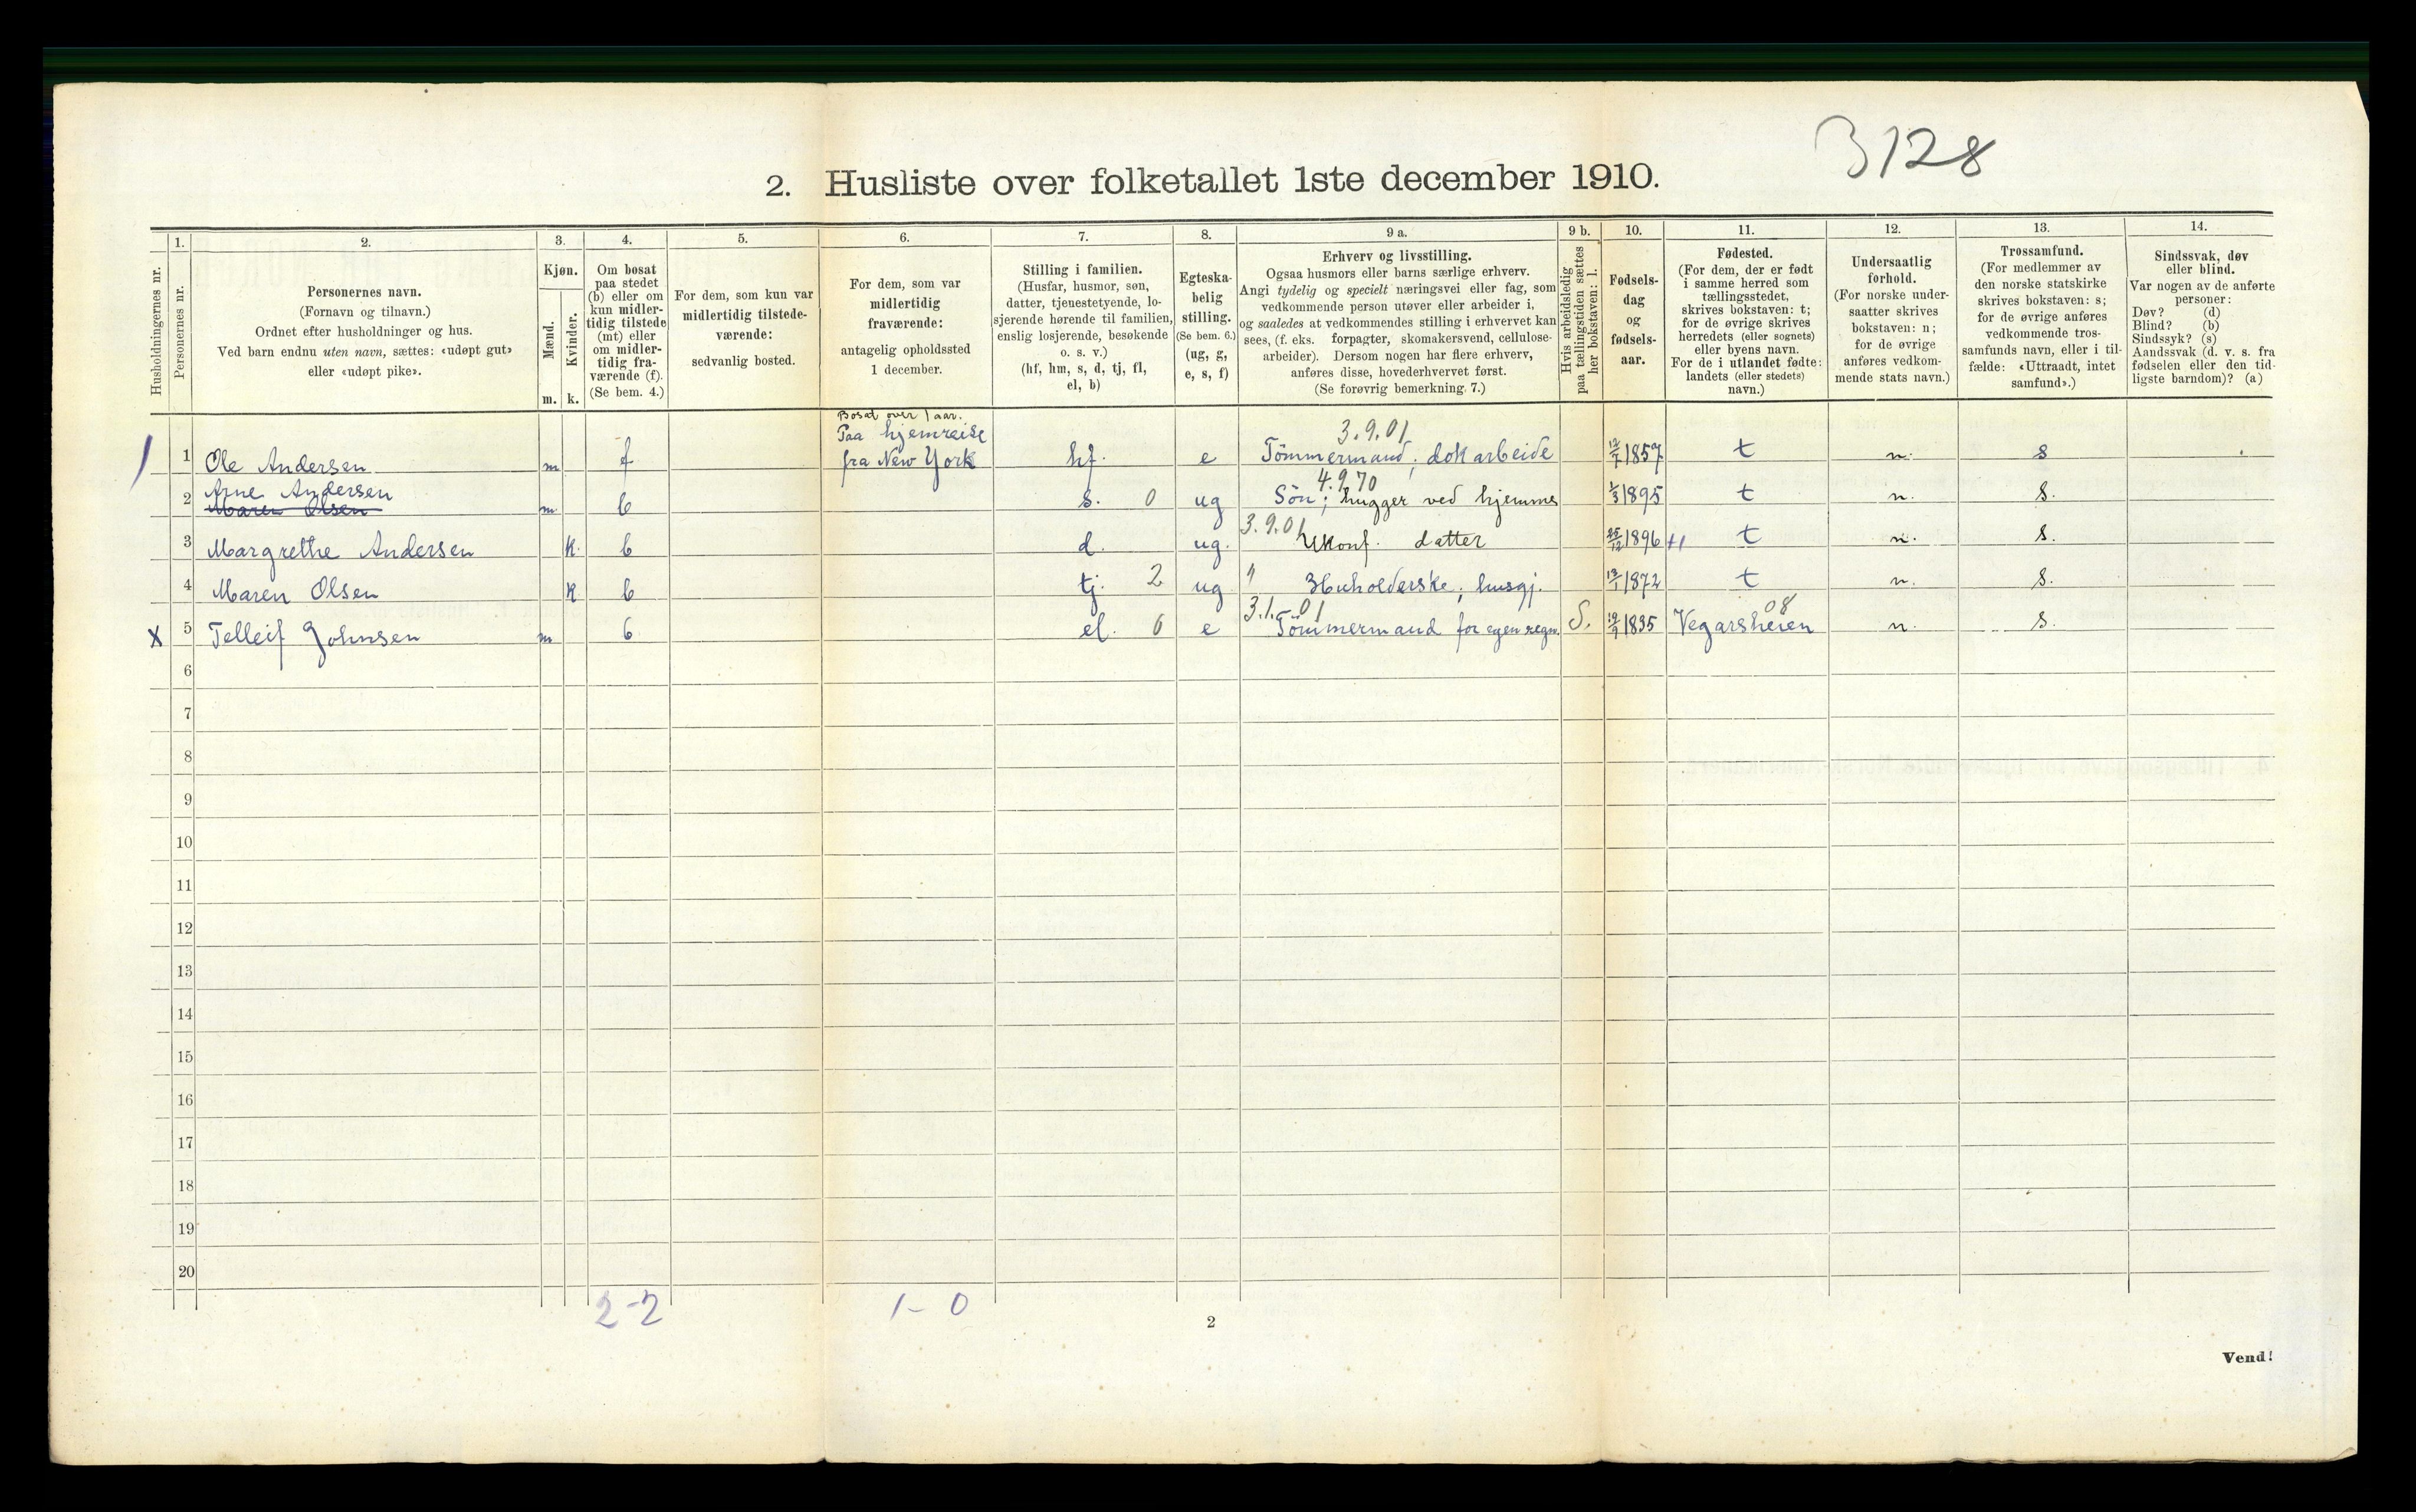 3128
2. Husliste over folketallet 1ste december 1910.
Husholdningernes nr.
1.
Personernes nr.
2.
Personernes navn.
(Fornavn og tilnavn.)
Ordnet efter husholdninger og hus.
Ved barn endnu uten navn, sættes: «udøpt gut»
eller «udøpt pike».
3.
Kjøn.
Mænd.
Kvinder.
m. k.
4.
Om bosat
paa stedet
(b) eller om
kun midler-
tidig tilstede
(mt) eller
om midler-
tidig fra-
værende (f).
(Se bem. 4.)
5.
For dem, som kun var
midlertidig tilstede-
værende:
sedvanlig bosted.
6.
For dem, som var
midlertidig
fraværende:
antagelig opholdssted
1 december.
7.
Stilling i familien.
(Husfar, husmor, søn,
datter, tjenestetyende, lo-
sjerende hørende til familien,
enslig losjerende, besøkende
o. s. v.)
(hf, hm, s, d, tj, fl,
el, b)
8.
Egteska-
belig
stilling.
(Se bem. 6.)
(ug, g,
e, s, f)
9 a.
Erhverv og livsstilling.
Ogsaa husmors eller barns særlige erhverv.
Angi tydelig og specielt næringsvei eller fag, som
vedkommende person utøver eller arbeider i,
og saaledes at vedkommendes stilling i erhvervet kan
sees, (f. eks. forpagter, skomakersvend, cellulose-
arbeider). Dersom nogen har flere erhverv,
anføres disse, hovederhvervet først.
(Se forøvrig bemerkning 7.)
9 b.
Hvis arbeidsledig
paa tællingstiden sættes
her bokstaven: l.
10.
Fødsels-
dag
og
fødsels-
aar.
11.
Fødested.
(For dem, der er født
i samme herred som
tællingsstedet,
skrives bokstaven: t;
for de øvrige skrives
herredets (eller sognets)
eller byens navn.
For de i utlandet fødte:
landets (eller stedets)
navn.)
12.
Undersaatlig
forhold.
(For norske under-
saatter skrives
bokstaven: n;
for de øvrige
anføres vedkom-
mende stats navn.)
13.
Trossamfund.
(For medlemmer av
den norske statskirke
skrives bokstaven: s;
for de øvrige anføres
vedkommende tros-
samfunds navn, eller i til-
fælde: «Uttraadt, intet
samfund».)
14.
Sindssvak, døv
eller blind.
Var nogen av de anførte
personer:
Døv? (d)
Blind? (b)
Sindssyk? (s)
Aandssvak (d. v. s. fra
fødselen eller den tid-
ligste barndom)? (a)
Bosat over 1 aar.
Paa hjemreise 3.9.01
1 Ole Andersen m f fra New York hf. e Tömmermand; dokarbeide 12/7 1857 t n. s
Arne Andersen 4.9.70
2 Maren Olsen m b s. 0 ug Sön; hugger ved hjemme 1/3 1895 t n. s.
3.9.01
3 Margrethe Andersen k. b d. ug. Ukonf. datter 25/12 1896 t n. s.
4 Maren Olsen k b tj. 2 ug " Husholderske; husgj. 13/1 1872 t n. s.
3.1.01 08
x 5 Telleif Johnsen m b el. 0 e Tömmermand for egen regn. S. 1835 Vegarsheien n. s.
6
7
8
9
10
11
12
13
14
15
16
17
18
19
20
2-2 1-0
2
Vend!